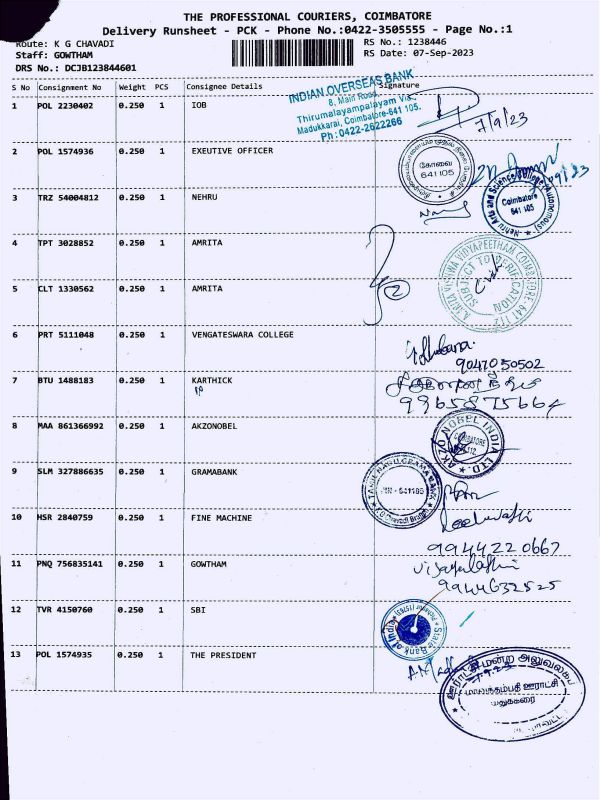 THE PROFESSIONAL COURIERS, COIMBATORE
Delivery Runsheet - PCK - Phone No.:0422-3505555 - Page No.:1
Route: K G CHAVADI
RS No.: 1238446
Staff: GOWTHAM
RS Date: 07-Sep-2023
DRS No.: DCJB123844601
S No Consignment No Weight PCS Consignee Details Signature
1 POL 2230402 0.250 1 IOB
INDIAN OVERSEAS BANK
8, Main Road
Thirumalayampalayam Via.
Madukkarai, Coimbatore-641 105.
Ph:0422-2622266
7/9/23
2 POL 1574936 0.250 1 EXEUTIVE OFFICER
கோவை
641 105
3 TRZ 54004812 0.250 1 NEHRU
Nehru Arts and Science College (Autonomous)
Coimbatore
641 105
4 TPT 3028852 0.250 1 AMRITA
5 CLT 1330562 0.250 1 AMRITA
AMRITA VISHWA VIDYAPEETHAM COIMBATORE - 641 112
SUBJECT TO VERIFICATION
6 PRT 5111048 0.250 1 VENGATESWARA COLLEGE
9047050502
7 BTU 1488183 0.250 1 KARTHICK
9965875664
8 MAA 861366992 0.250 1 AKZONOBEL
AKZO NOBEL INDIA LTD.
9 SLM 327886635 0.250 1 GRAMABANK
TAMIL NADU GRAMA BANK
K.G Chavadi Branch
10 HSR 2840759 0.250 1 FINE MACHINE
9944220667
11 PNQ 756835141 0.250 1 GOWTHAM
9944632525
12 TVR 4150760 0.250 1 SBI
State Bank of India
13 POL 1574935 0.250 1 THE PRESIDENT
ஊராட்சி மன்ற அலுவலகம்
ஊராட்சி